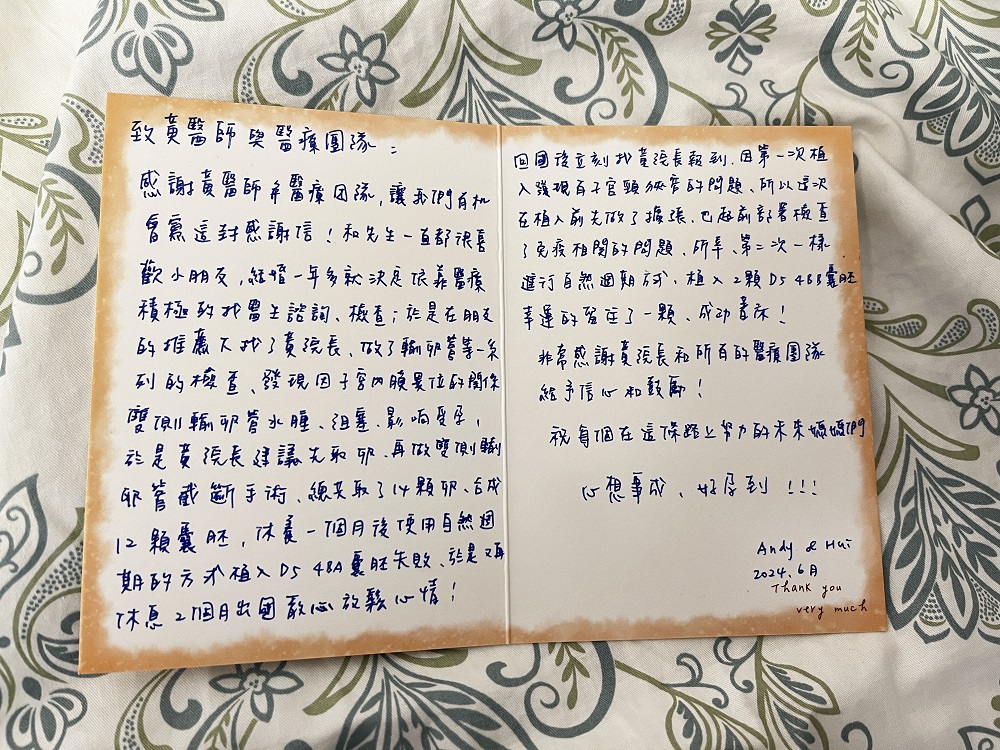 致黃醫師與醫療團隊：
感謝黃醫師和醫療团隊，讓我們有机
會寫這封感謝信！和先生一直都很喜
歡小朋友，結婚一年多就決定依靠醫療
積極的找醫生諮詢、檢查；於是在朋友
的推薦下找了黃院長、做了輸卵管等一系
列的檢查、發現因子宮內膜異位的關係
雙側輸卵管水腫、阻塞、影响受孕，
於是黃院長建議先取卵、再做雙側輸
卵管截斷手術、總共取了14顆卵、合成
12顆囊胚，休養一個月後使用自然週
期的方式植入D5 4BA囊胚失敗、於是又再
休息2個月出國散心放鬆心情！
回國後立刻找黃院長報到、因第一次植
入發現有子宮頸狹窄的問題、所以這次
在植入前先做了擴張、也超前部署檢查
了免疫相關的問題、所幸、第二次一樣
進行自然週期方式、植入2顆D5 4BB囊胚
幸運的留住了一顆、成功著床！
非常感謝黃院長和所有的醫療團隊
給予信心和鼓勵！
祝每個在這條路上努力的未來媽媽們
心想事成、好孕到!!!
Andy & Hui
2024.6月
Thank you
very much